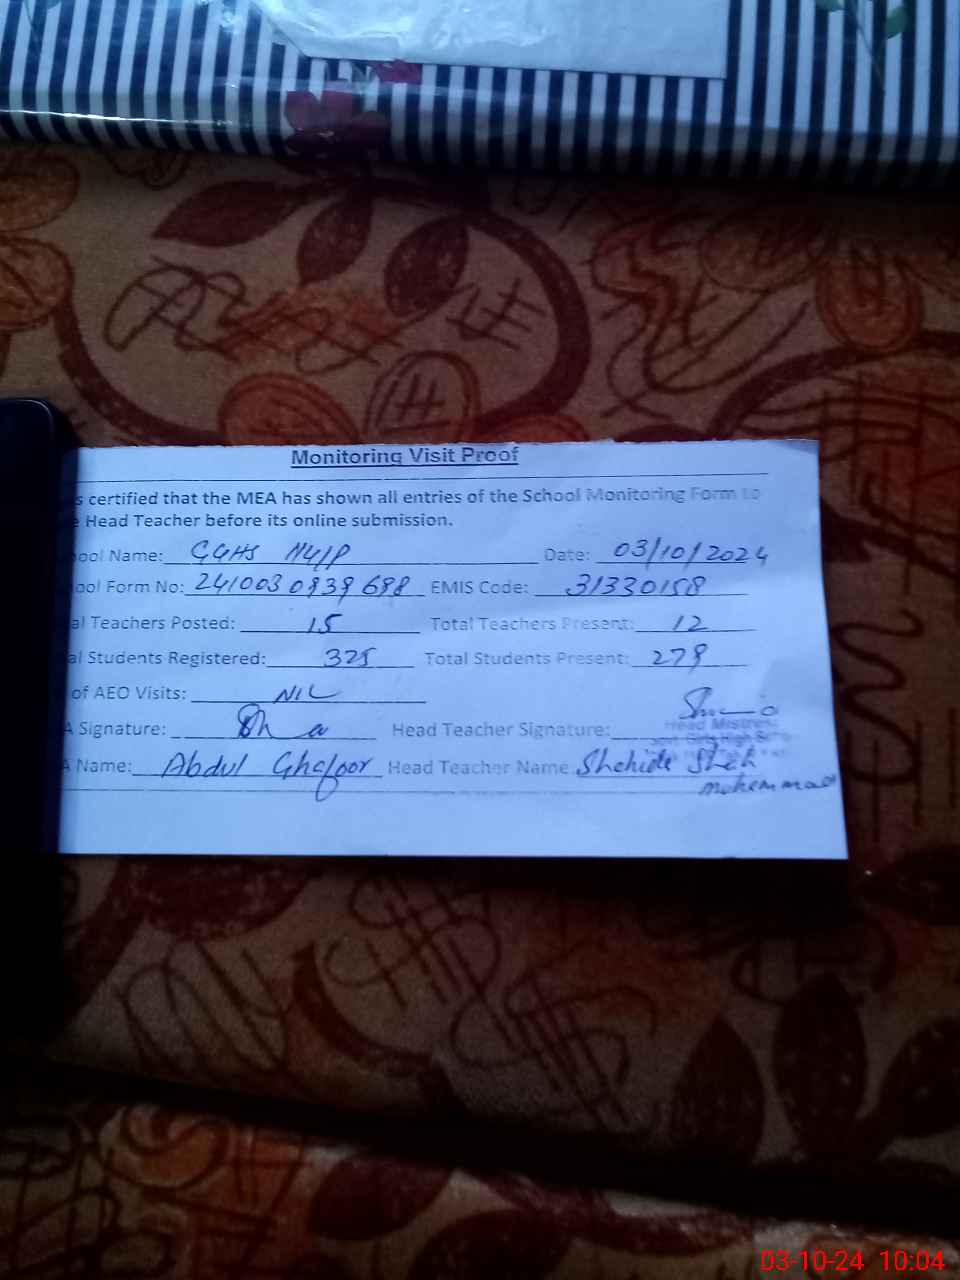 Monitoring Visit Proof
s certified that the MEA has shown all entries of the School Monitoring Form to
e Head Teacher before its online submission.
ool Name: GGHS 114/P Date: 03/10/2024
ool Form No: EMIS Code: 31330158
al Teachers Posted: 15 Total Teachers Present: 12
al Students Registered: 325 Total Students Present: 279
of AEO Visits: NIL
A Signature: Head Teacher Signature:
Head Mistress
Girls High
A Name: Abdul Ghafoor Head Teacher Name
03-10-24 10:04